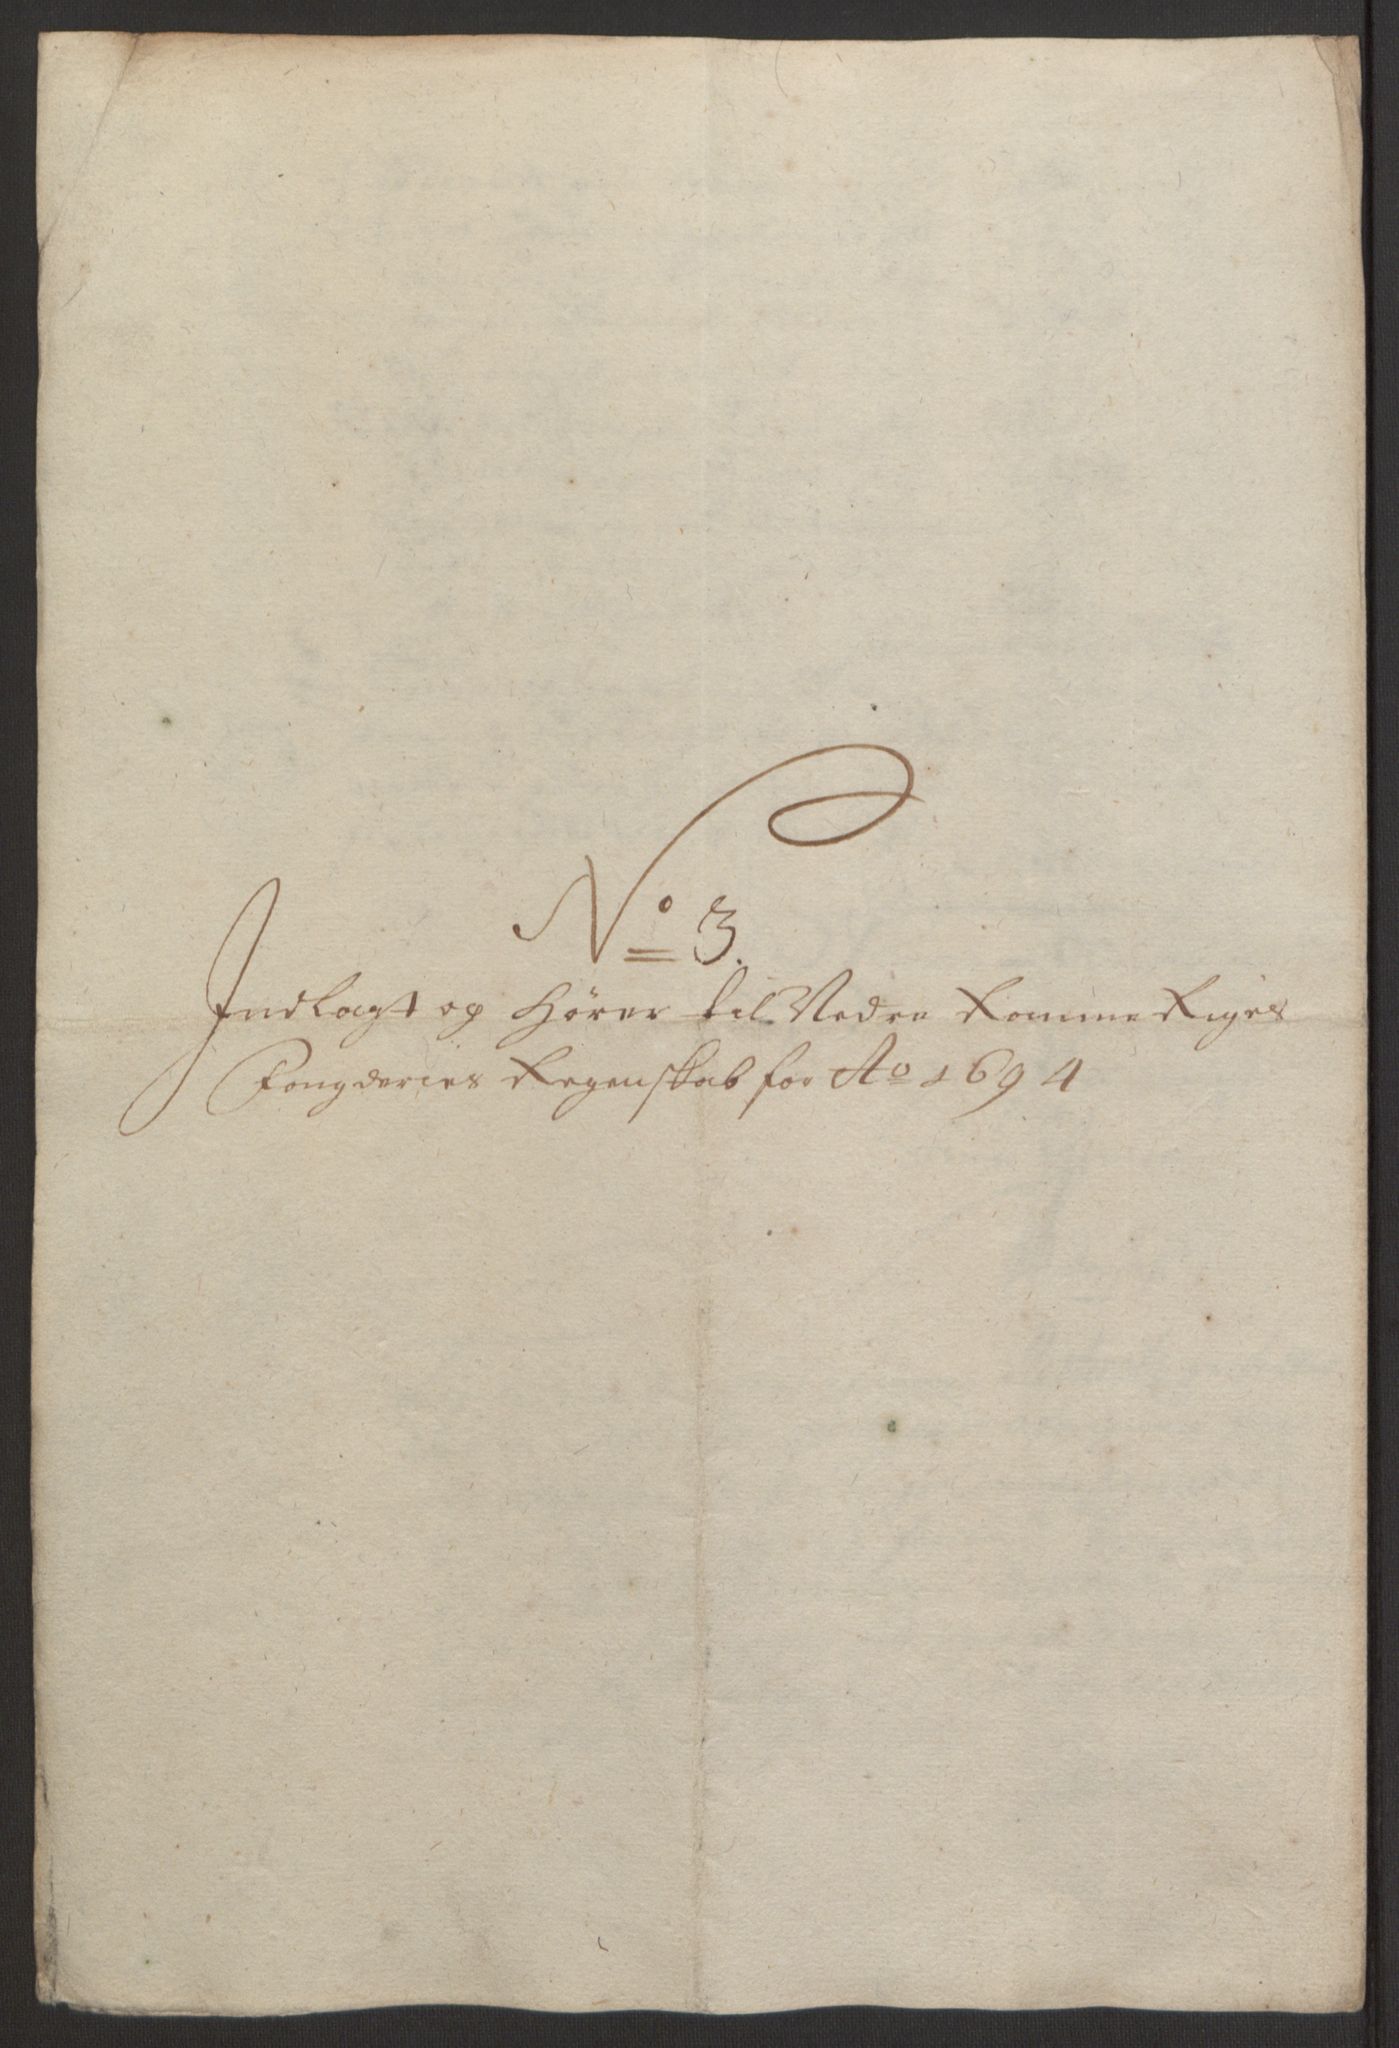 No 3.
Indlagt og Hörer til Nedre RommeRiges
Fougderies Regenskab for Ao 1694